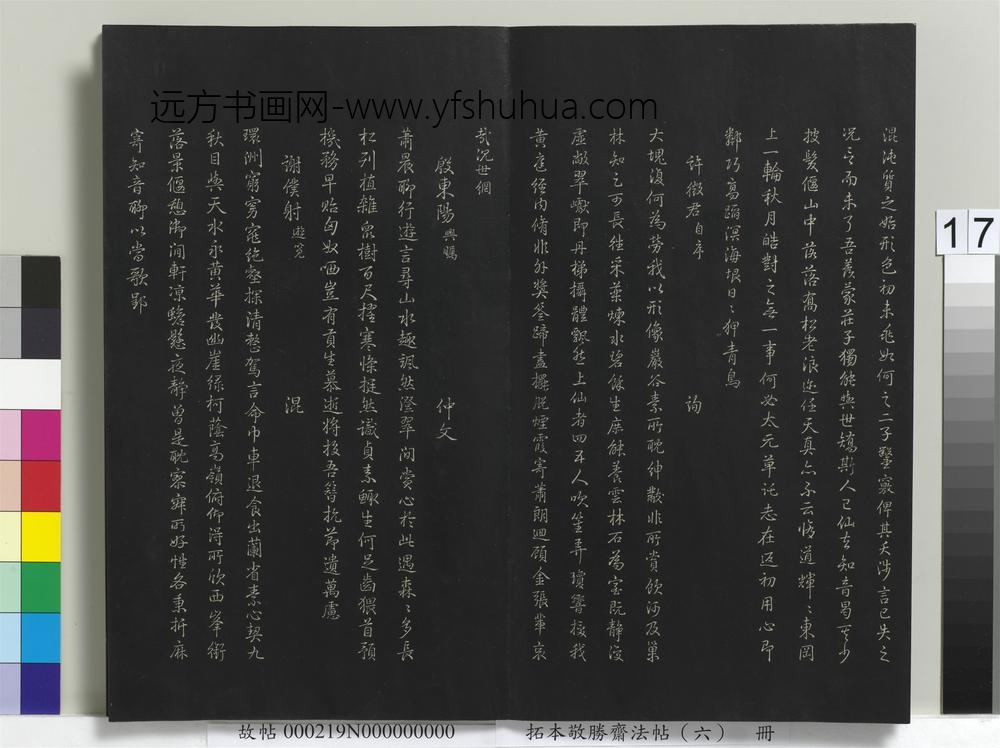 远方书画网-www.yfshuhua.com
混沌質之始形色初未兆如何之二子鑿竅俾其夭涉言已失之
况言而未了吾羨蒙莊子獨能與世矯斯人已仙去知音曷可少
披髮偃山中落落喬松老浪迹任天真亦不云悟道輝輝東岡
上一輪秋月皓對之無一事何必太元草託志在返初用心即
鄰巧高蹈溟海垠日日狎青鳥
許徵君自序 詢
大塊復何為勞我以形像巖谷素所耽紳黻非所賞飲河及巢
林知之可長往采藥煉水碧餘生庶能養雲林石為室既靜復
虛敞翠巘即丹梯攝體飄然上仙者四五人吹笙弄瓊響接我
黄庭經内脩非外奬筌蹄盡擺脱煙霞寄蕭朗迴顧金張輩哀
哉況世網
殷東陽興矚 仲文
蕭晨聊行遊言尋山水趣颯然澄翠間賞心於此遇森森多長
松列植雜衆樹百尺捿寒條挺然識貞素鯫生何足齒猥首預
機務早貽匈奴哂豈有貢生慕逝將投吾簪抗節遺萬慮
謝僕射遊覽 混
環洲窮窈窕絶壑探清愁駕言命巾車退食出蘭省素心契九
秋目與天水永黄華發幽崖緑柯蔭高嶺俯仰得所欣西峯銜
落景偃憩御澗軒凉蟾懸夜靜曽是耽寂寐所好性各秉折麻
寄知音聊以當歌郢
17
故帖 000219N000000000
拓本敬勝齋法帖（六） 冊